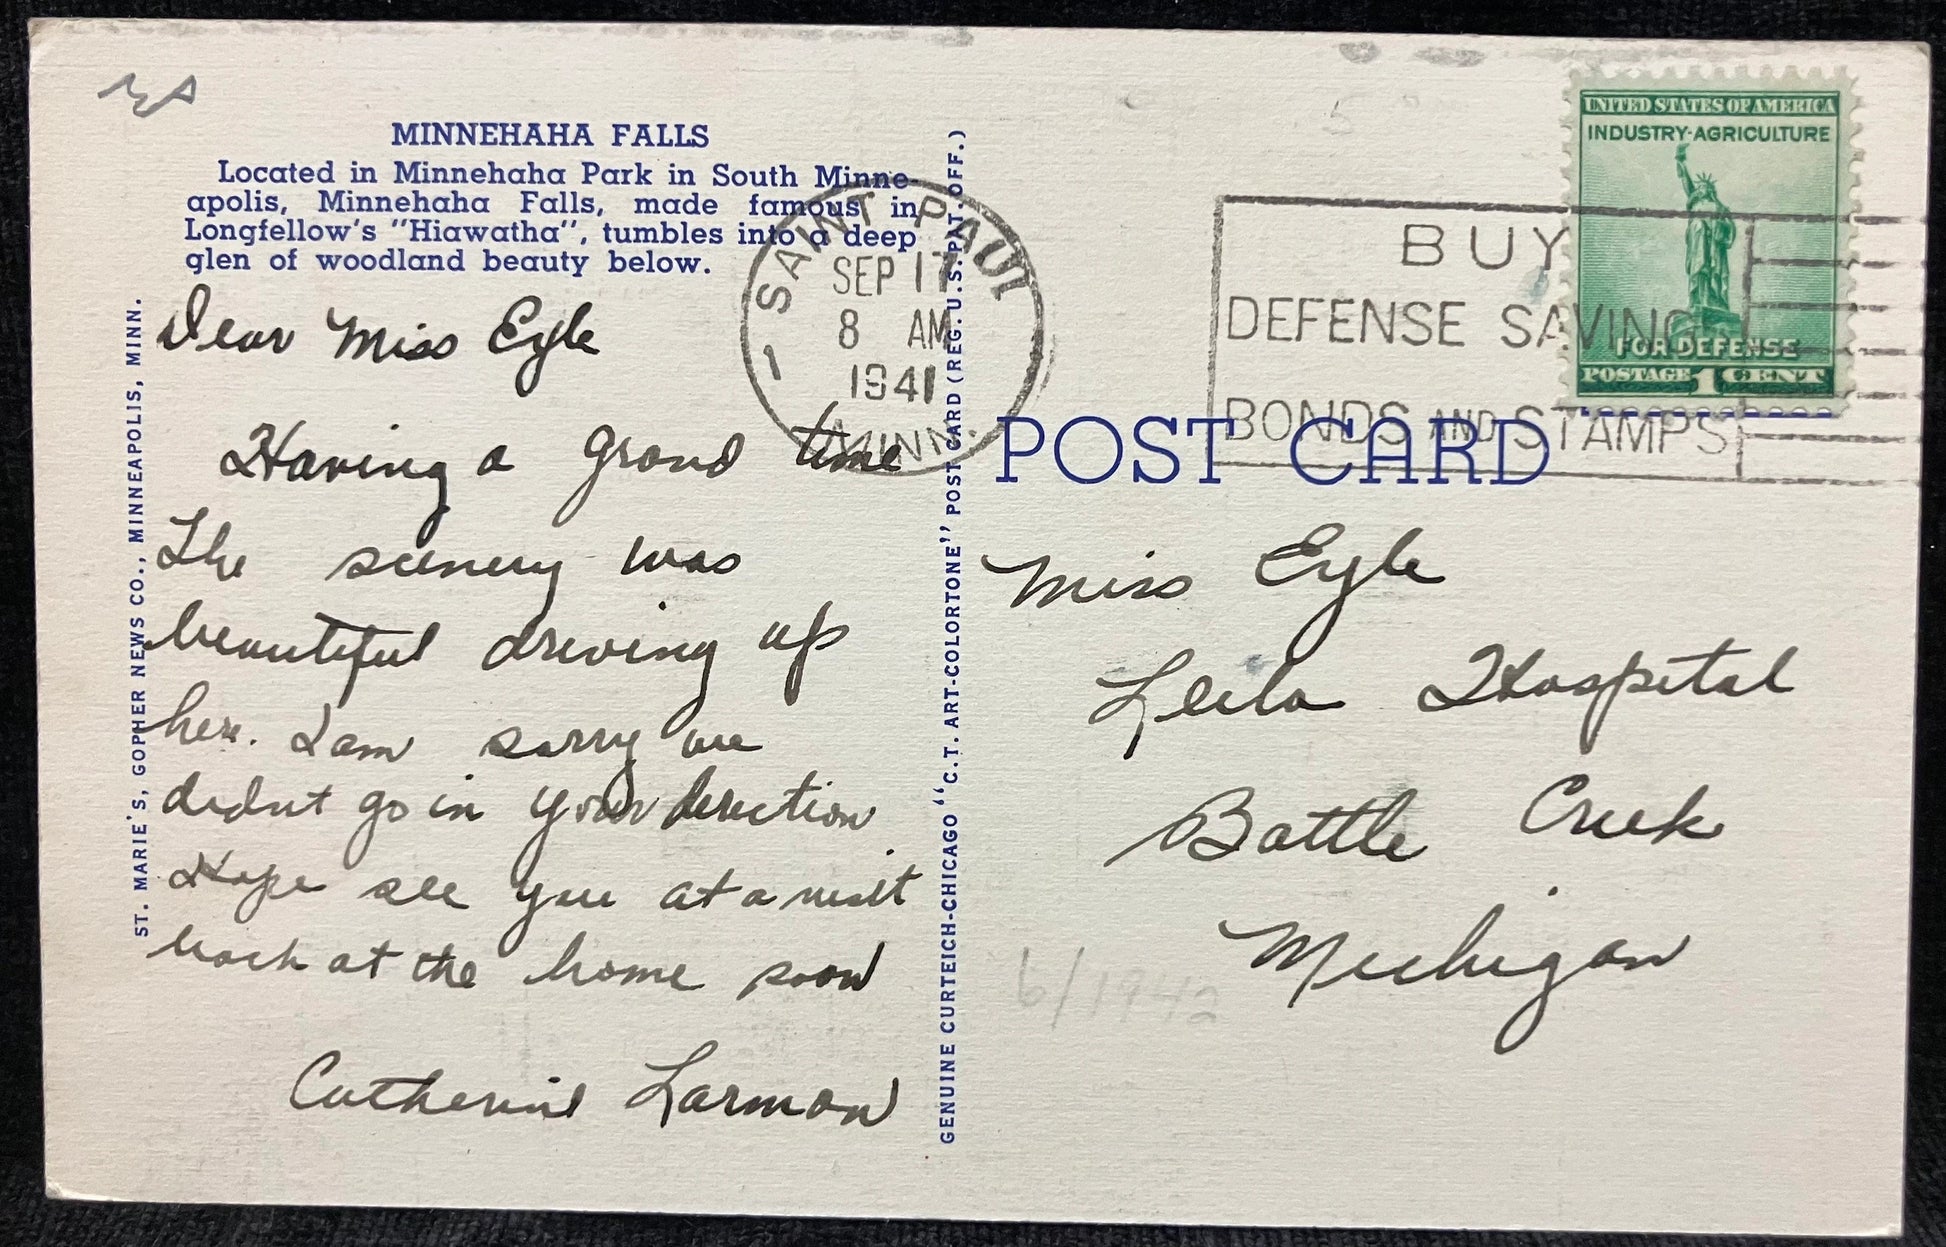 MINNEHAHA FALLS
Located in Minnehaha Park in South Minne-
apolis, Minnehaha Falls, made famous in
Longfellow's "Hiawatha", tumbles into a deep
glen of woodland beauty below.
Dear Miss Eyle
Having a grand time
The scenery was
beautiful driving up
here. I am sorry we
didnt go in your direction
Hope see you at a visit
back at the home soon
Catherine Larmon
ST. MARIE'S, GOPHER NEWS CO., MINNEAPOLIS, MINN.
GENUINE CURTEICH-CHICAGO "C.T. ART-COLORTONE" POST CARD (REG. U.S. PAT. OFF.)
SAINT PAUL
SEP 17
8 AM
1941
MINN.
BUY
DEFENSE SAVINGS
BONDS AND STAMPS
UNITED STATES OF AMERICA
INDUSTRY-AGRICULTURE
FOR DEFENSE
POSTAGE 1 CENT
POST CARD
Miss Eyle
Leila Hospital
Battle Creek
Michigan
6/1942